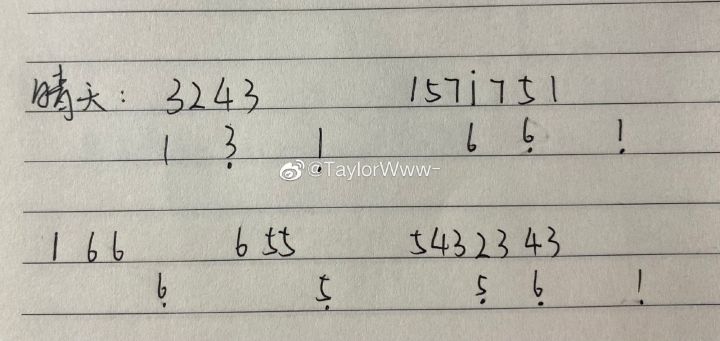 晴天: 3243 1571̇751
1 3̣ 1̣ 6 6̣ 1̣
@TaylorWww-
166 655 5432343
6̣ 5̣ 5̣ 6̣ 1̣